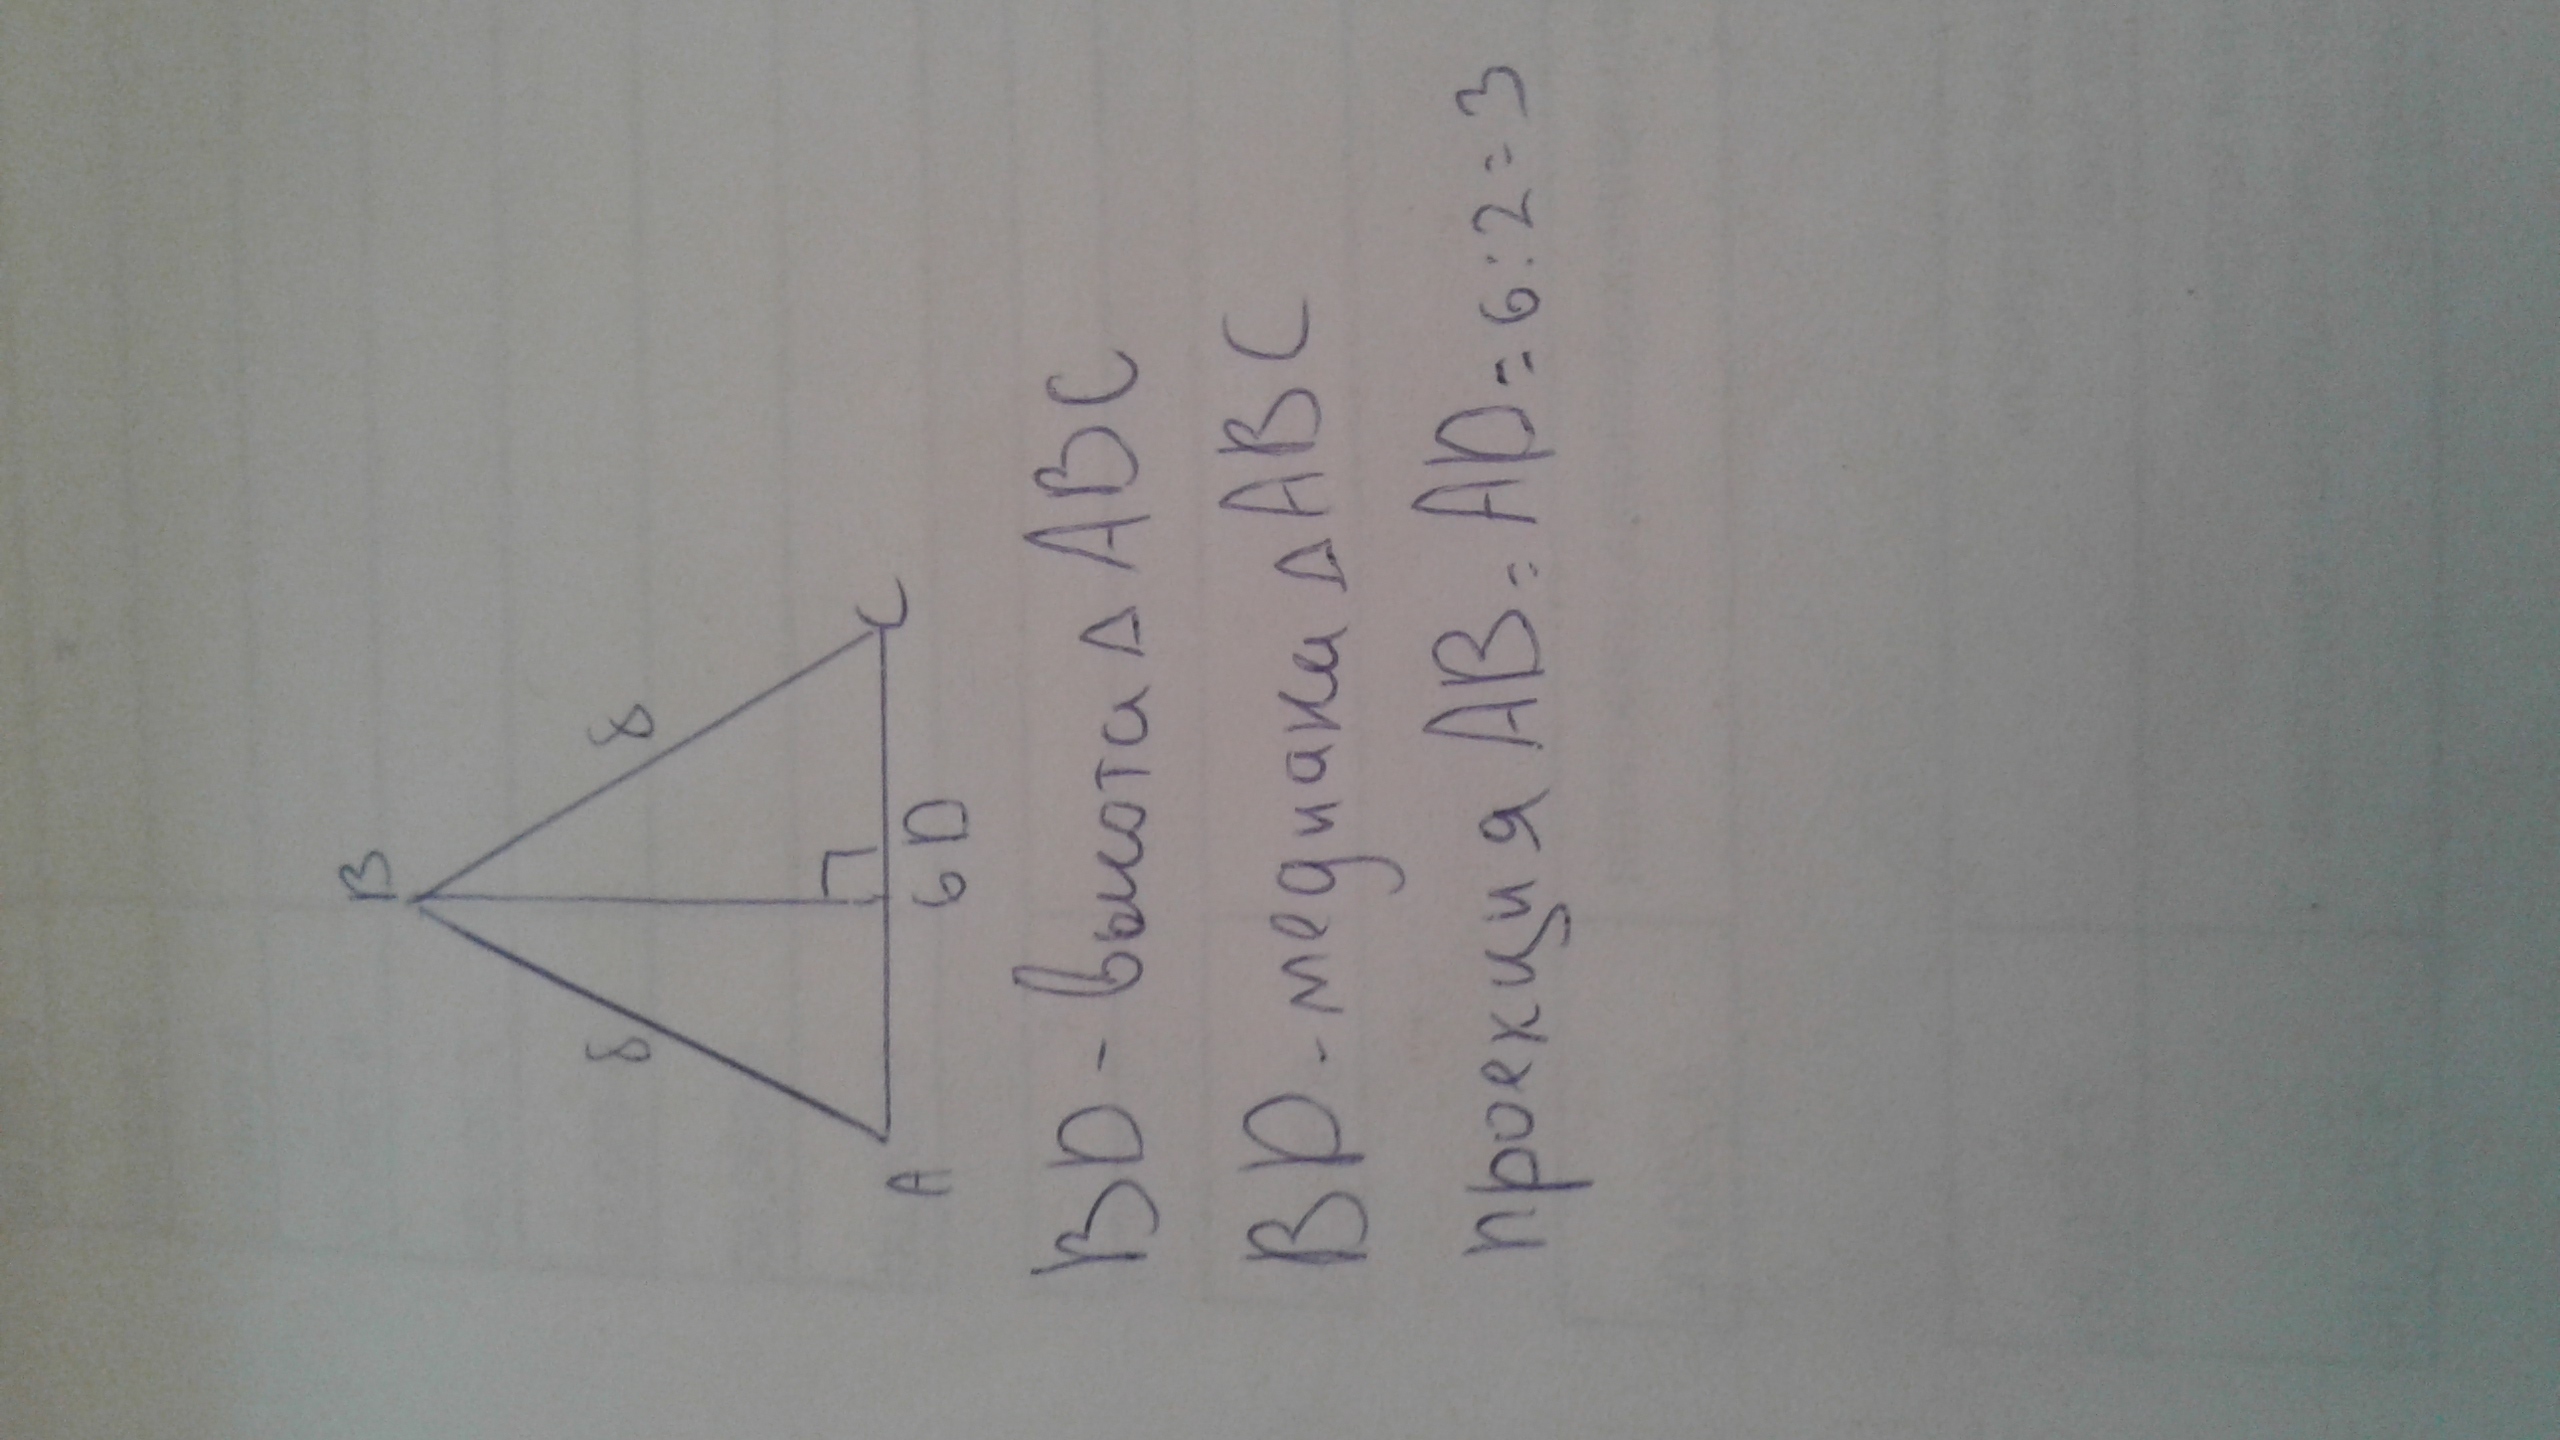 B
8 8
A 6 D C
BD - высота △ ABC
BD - медиана △ ABC
проекция AB = AD = 6 : 2 = 3